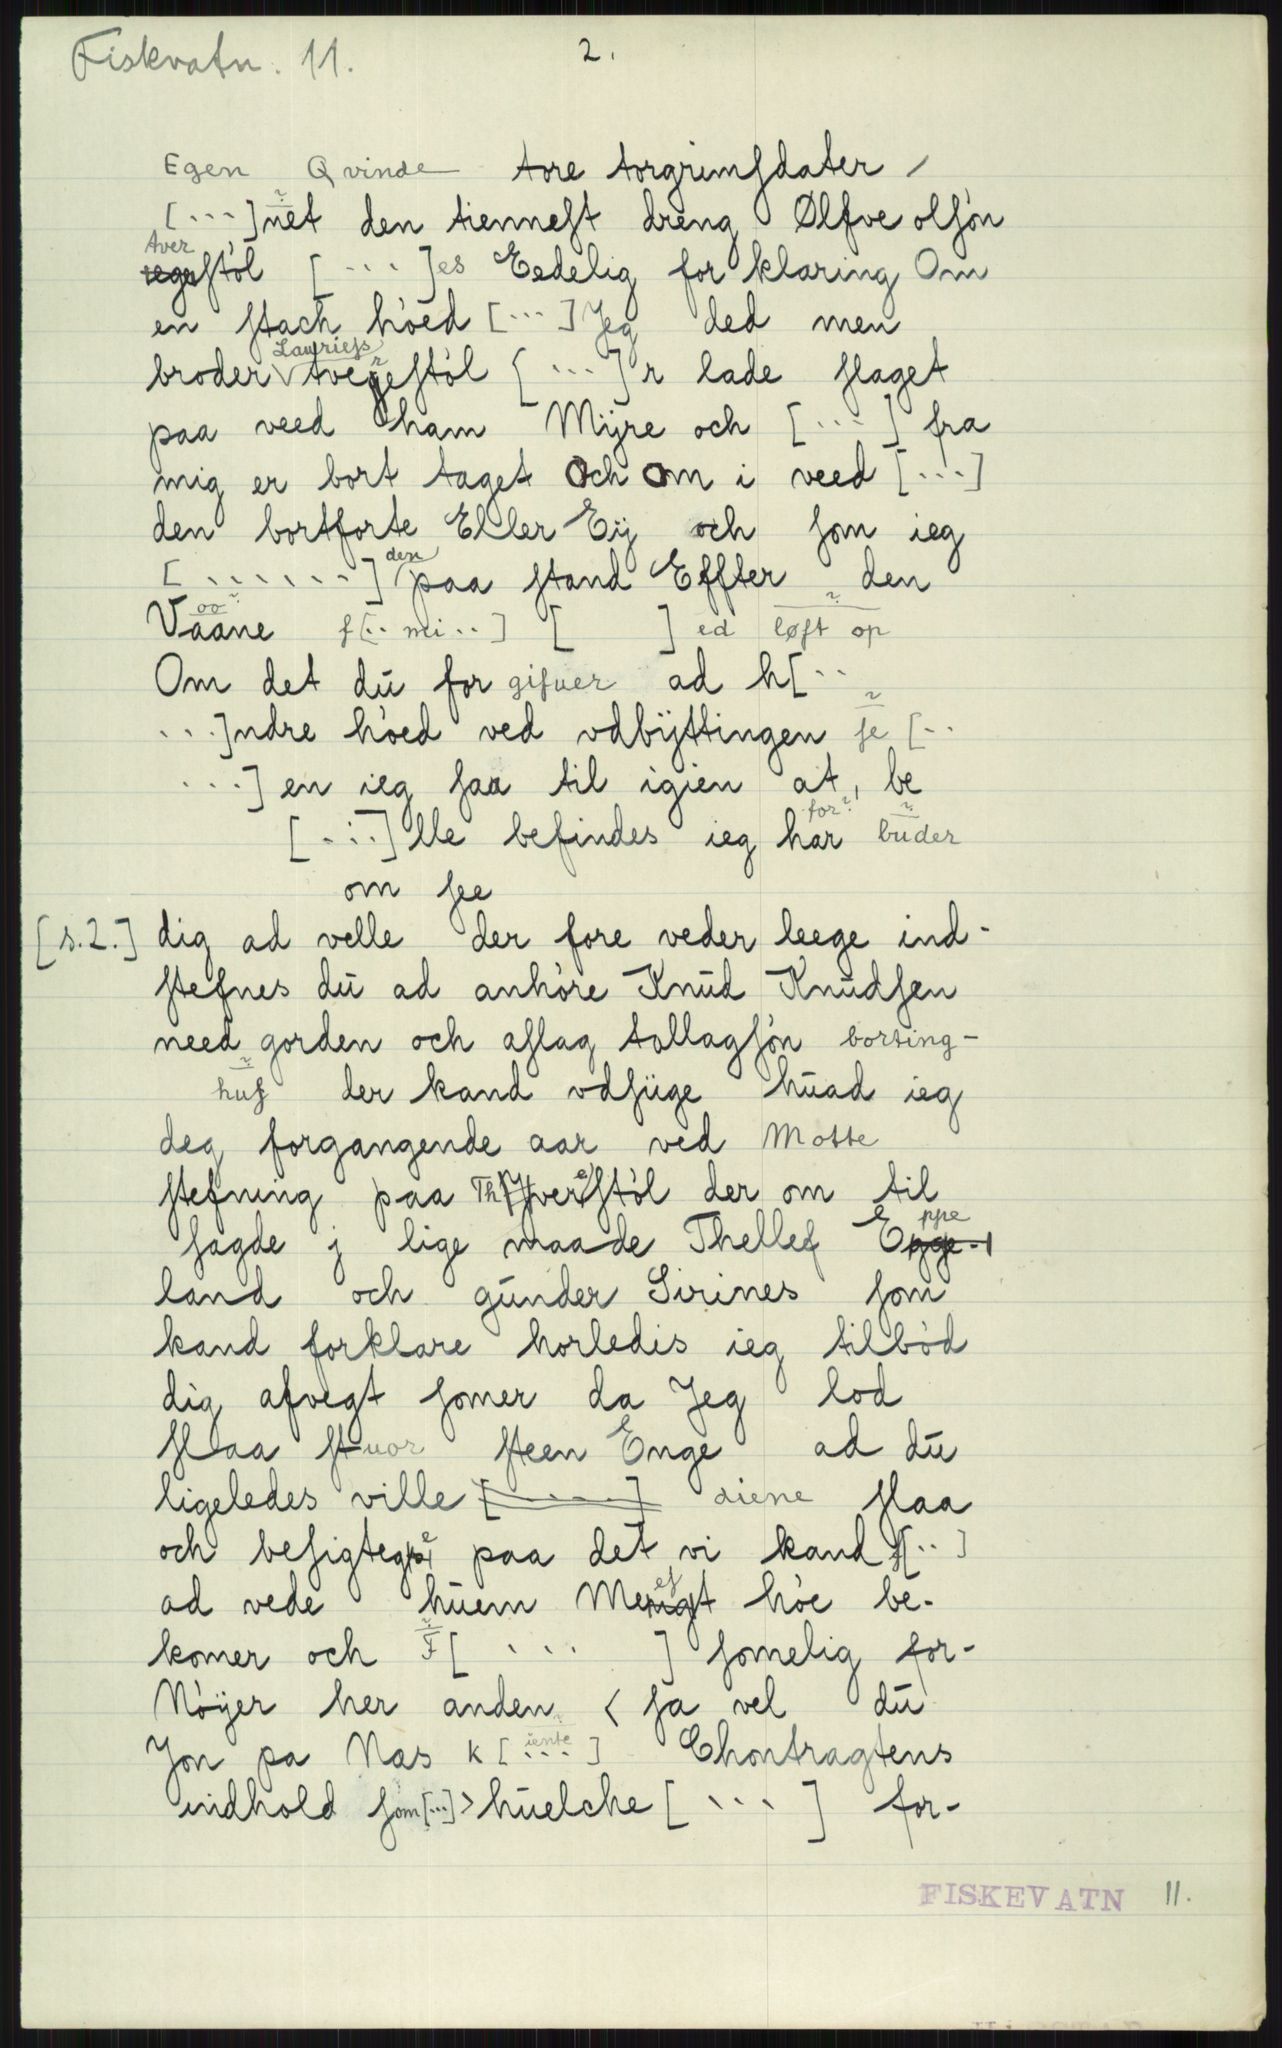 Fiskvatn. 11.
2.
Egen Qvinde tore torgrimsdater /
[...]net den tiennest dreng Ølfve olsón
Aver
stól [...]es Eedelig for klaring Om
en stach hóed [...] Jeg ded men
Lauriess
broder V tverestól [...]r lade slaget
paa veed ham Mijre och [...] fra
mig er bort taget Och Om i veed [...]
den bortforte Eller Eij och som ieg
[......] den paa stand Effter den
oo ?
Vaane f[.. mi ..] [ ] ed løft op
Om det dū for gifuer ad h[..
...]ndre hóed ved vdbÿttingen se [..
...] en ieg saa til igien at, be
for?
[...]lle befindes ieg har buder
om see
[s.2.] dig ad velle der fore veder leege ind-
stefnes dū ad anhóre Knūd Knūdsen
need gorden och aslag tollagsón borting-
hus der kand vdsiige hūad ieg
deg forgangende aar ved Motte
stefning paa Th verestól der om til
ppe
sagde j lige maade Thellef Egge-
land och gūnder Sirines som
kand forklare horledis ieg tilbód
dig afvegt somer da Jeg lod
slaa stuor steen Enge ad dū
ligeledes ville [.....] diene slaa
och besigtege paa det vi kand f[..]
ad vede hūem Mest hóe be-
komer och F[ ... ] somelig for-
Nóÿer her anden < sa vel dū
iente
Jon pa Nas K[...] Chontragtens
indhold som[...]> hūelche [...] for-
FISKEVATN 11.